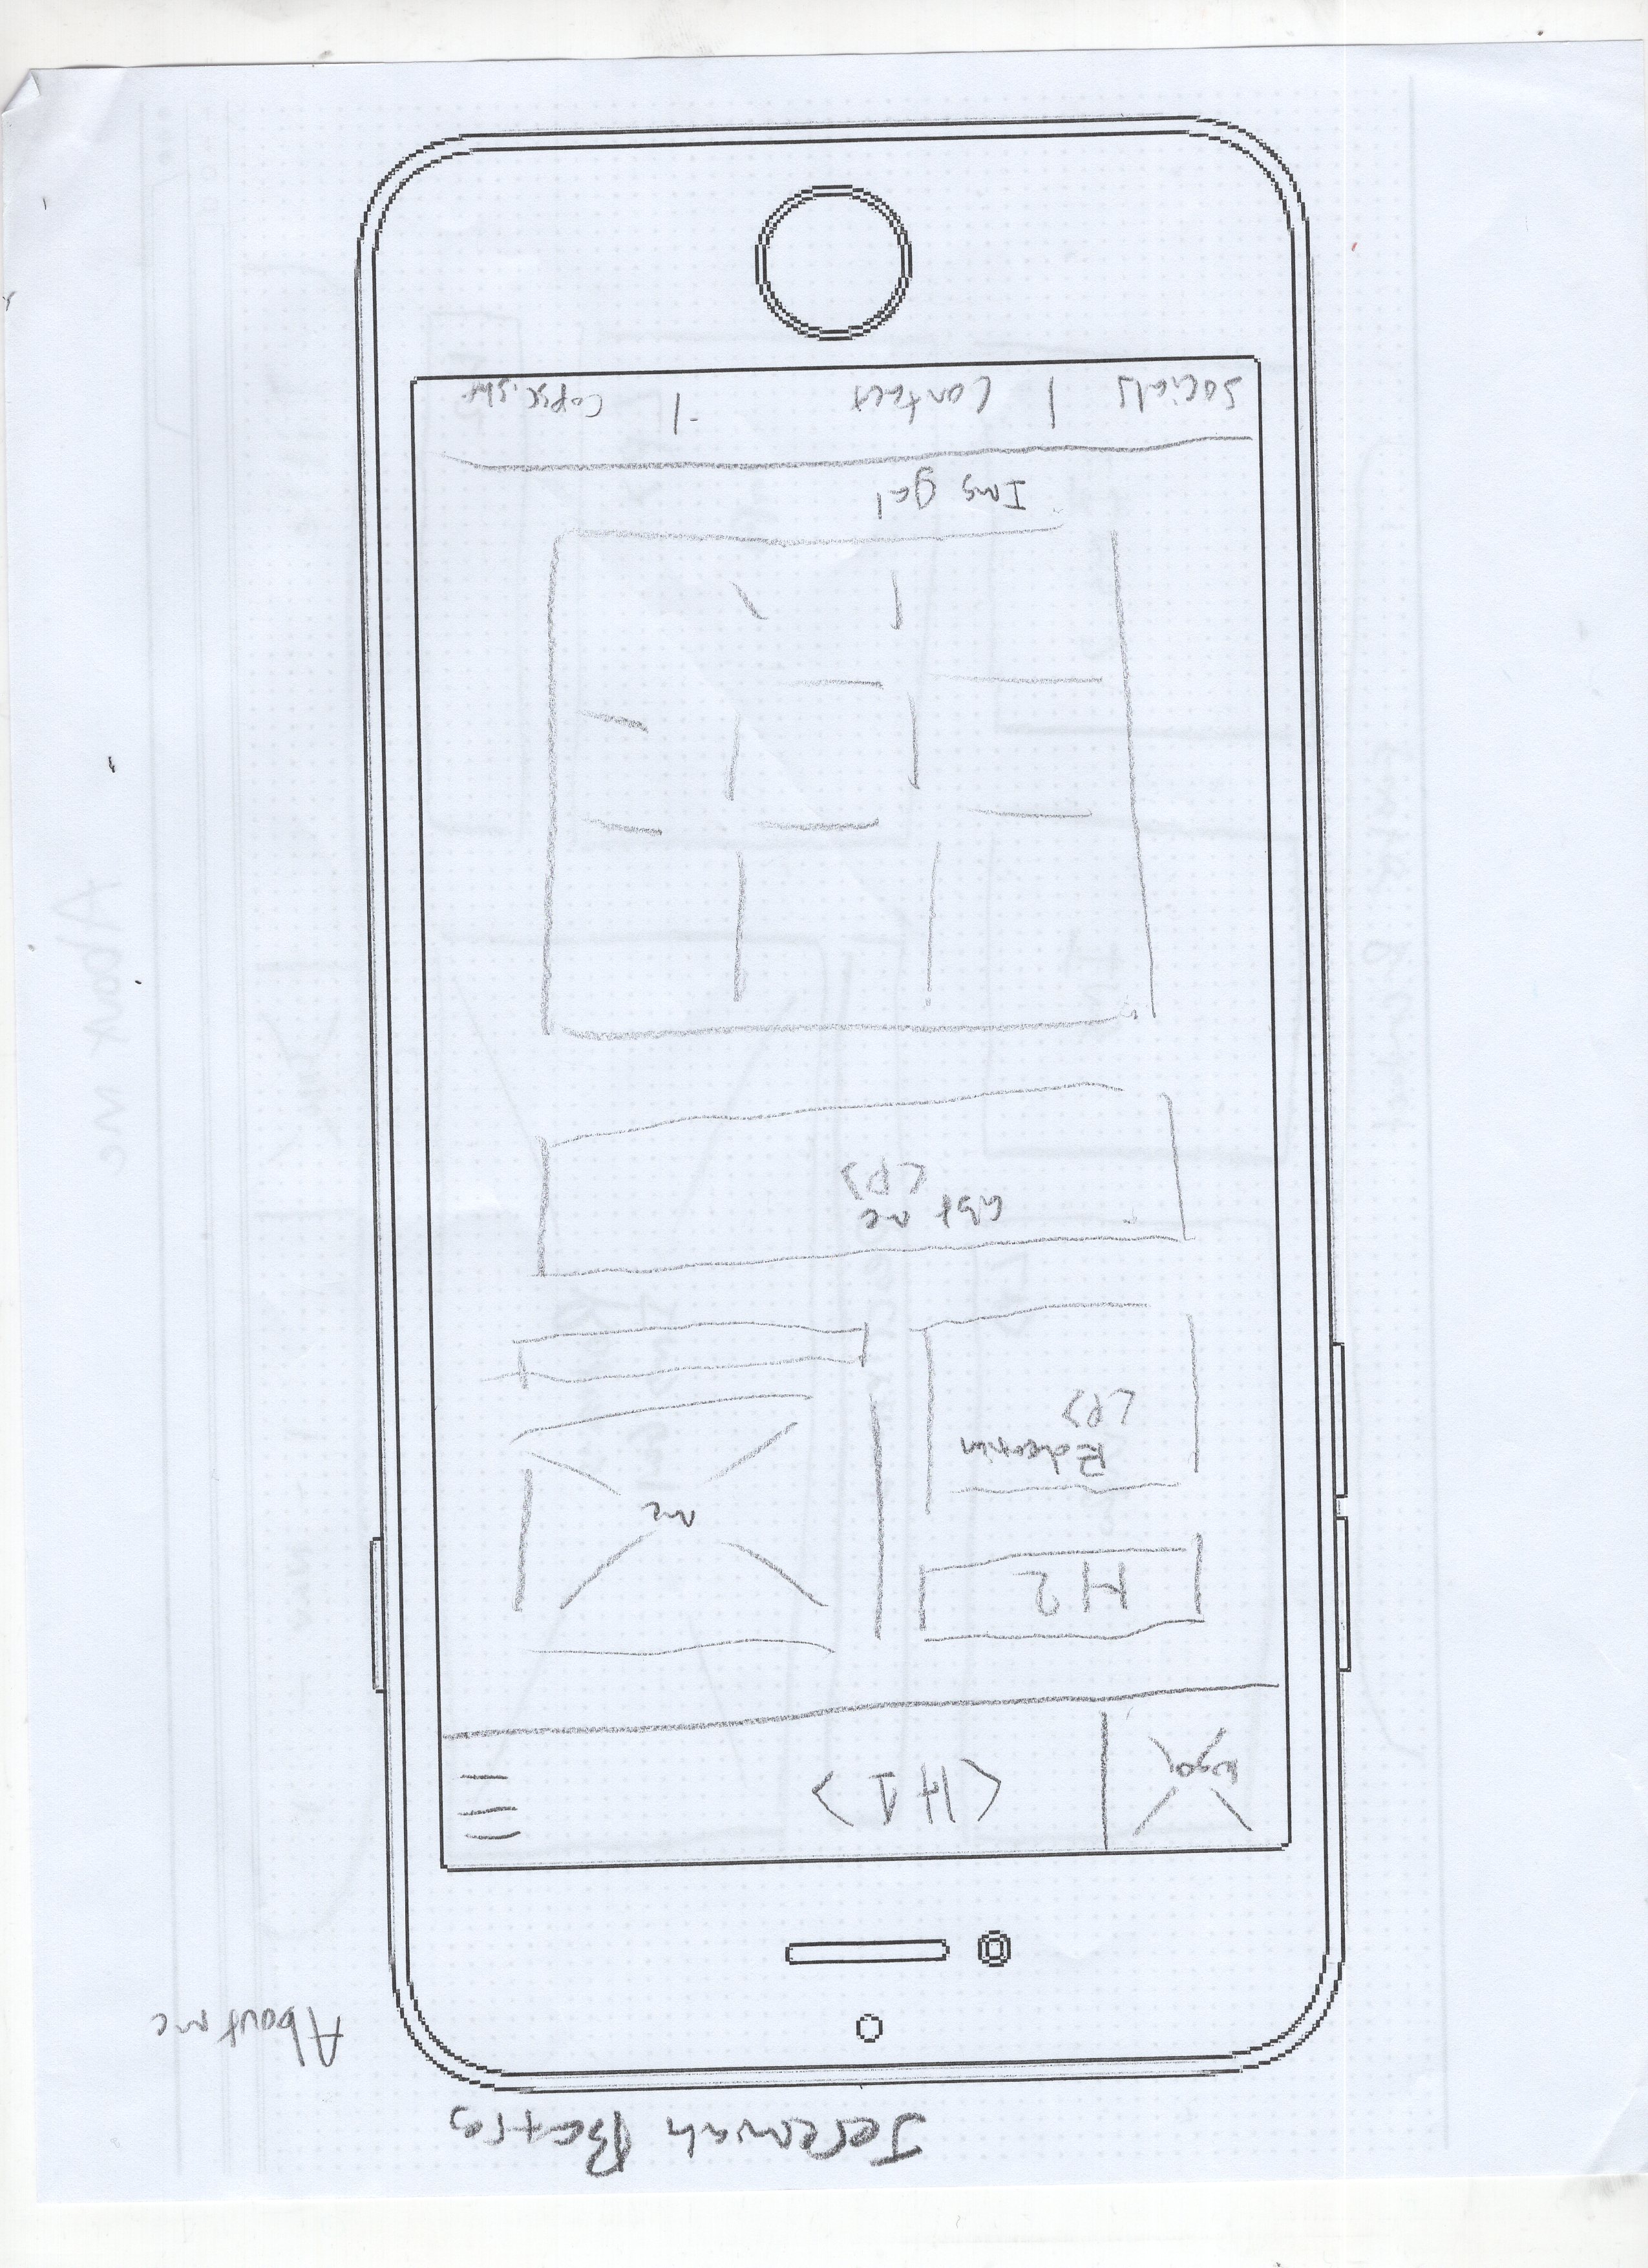 Jeremiah
About me
logo
<H1>
H2
me
Education
<P>
abt me
<P>
Img gal
Socials | Contact | Copyright